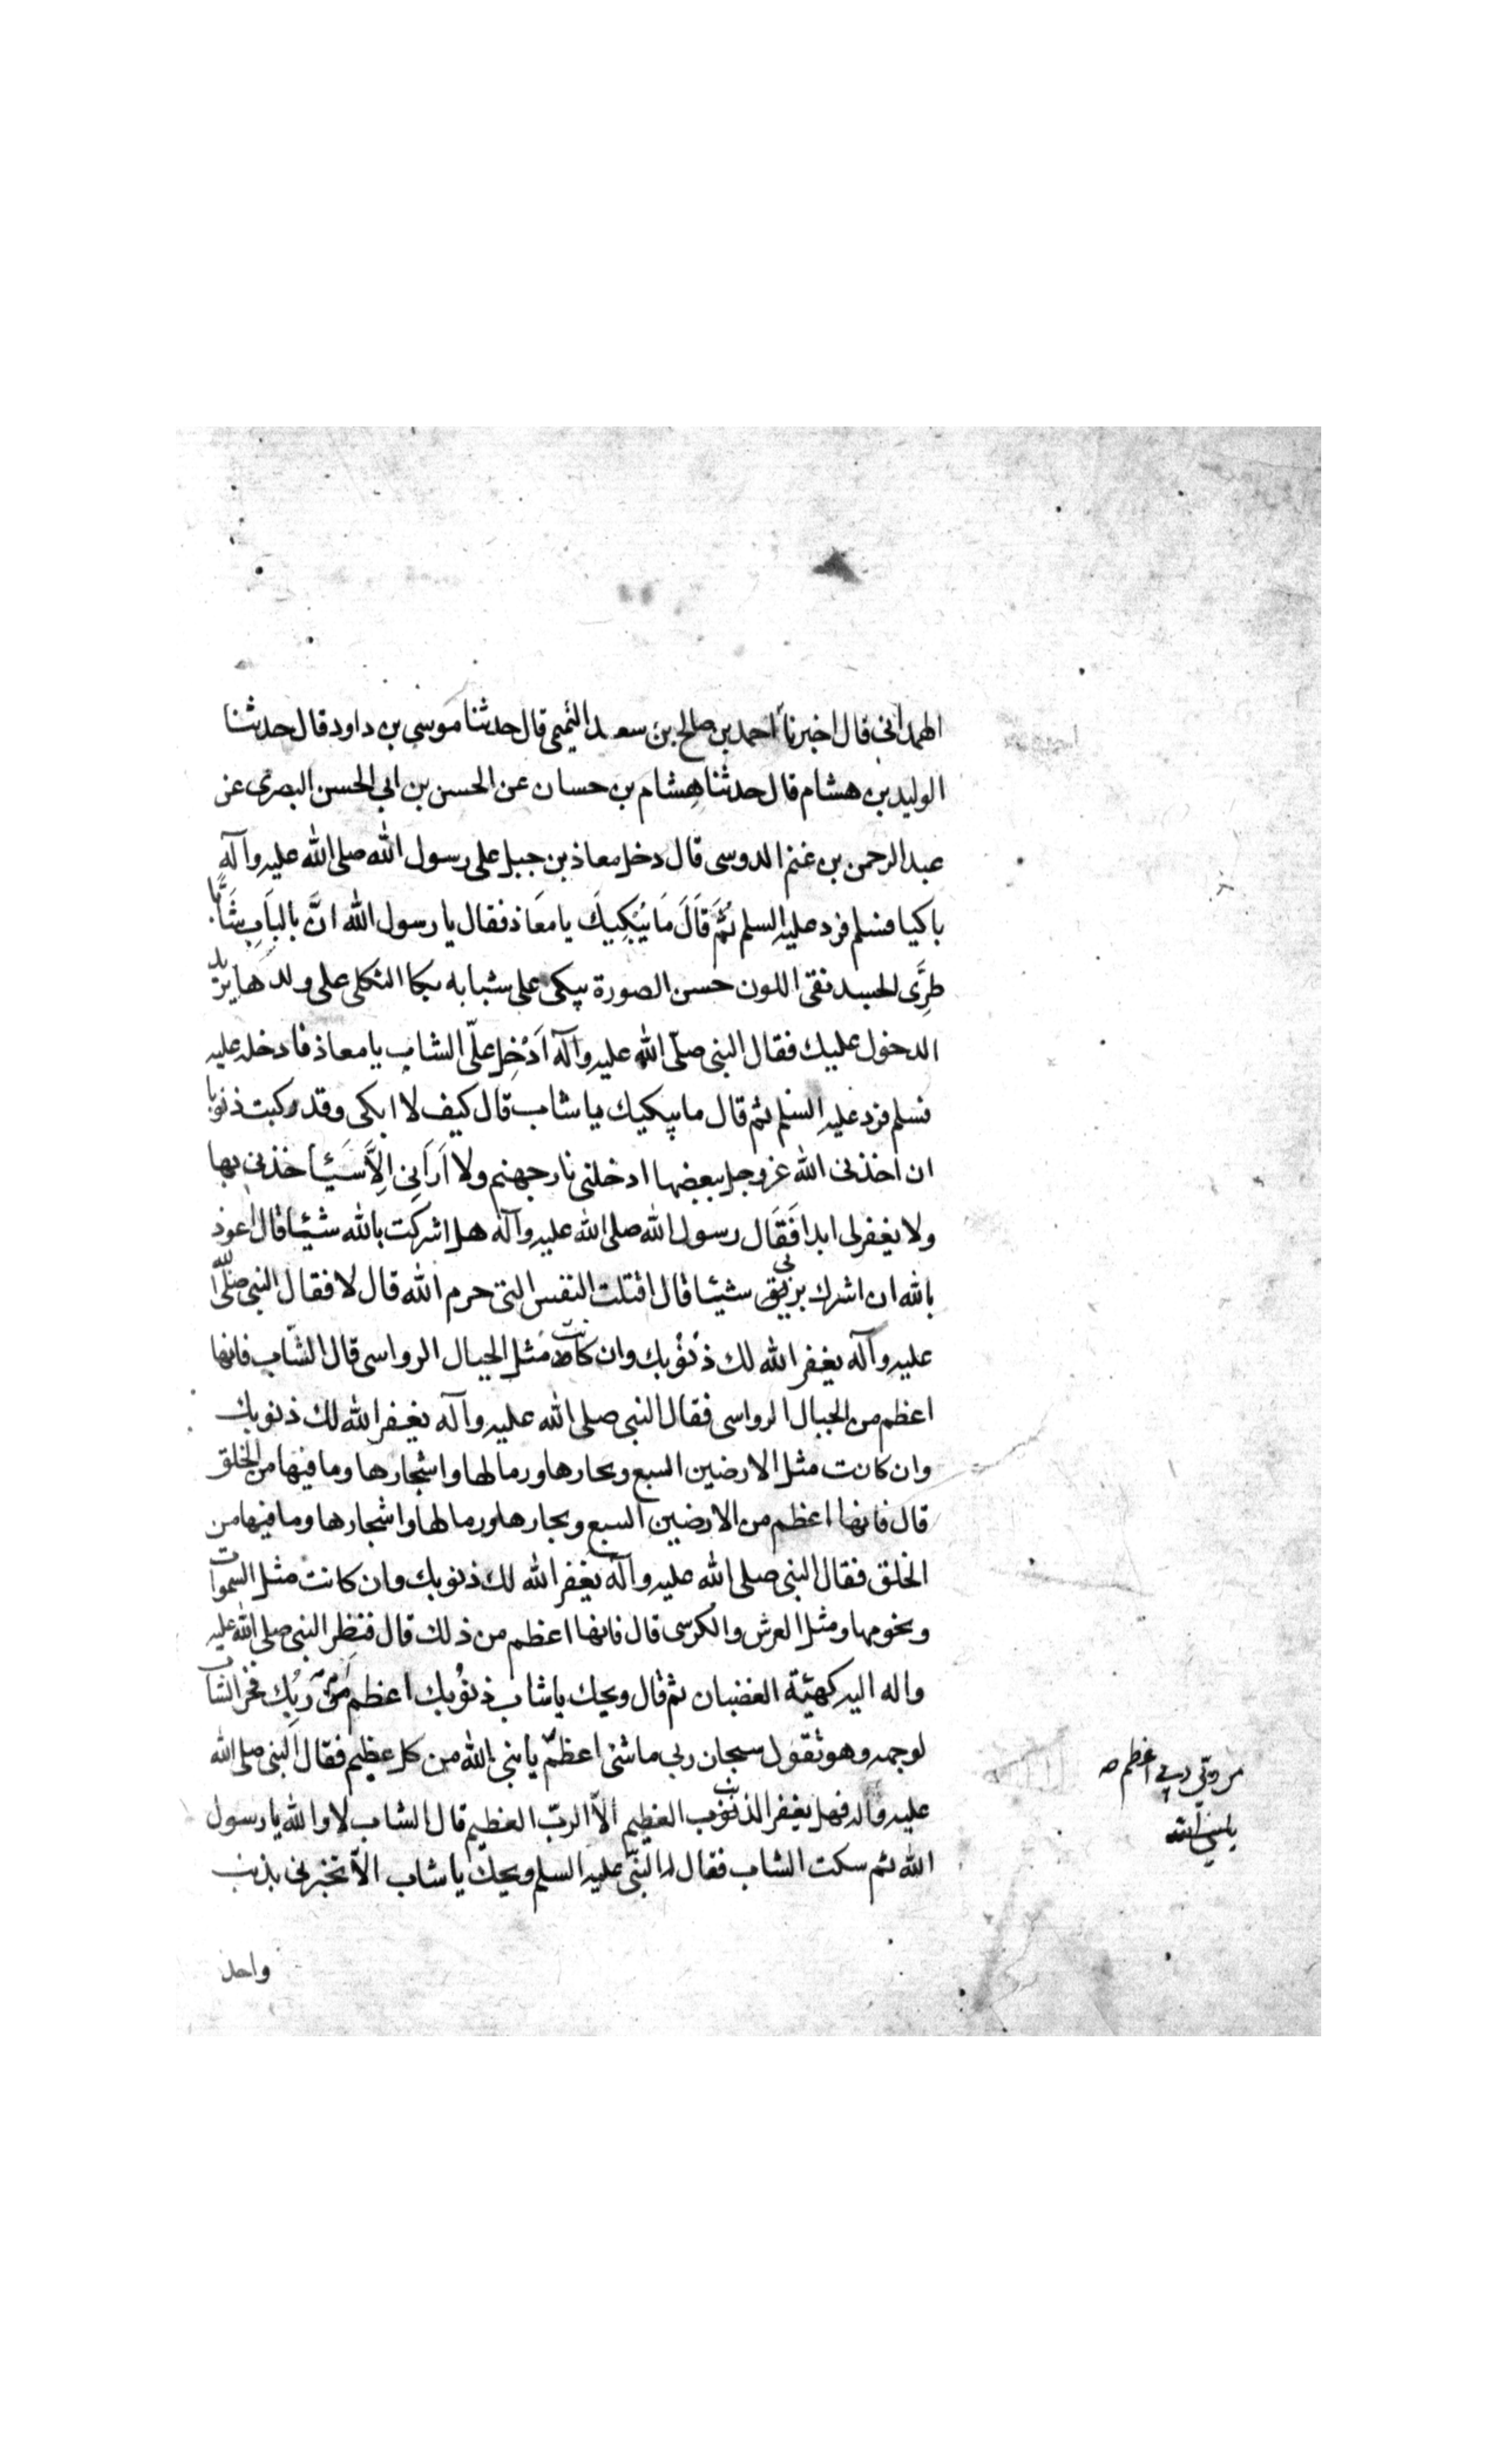 الهمداني قال اخبرنا احمد بن صالح بن سعد التميمي قال حدثنا موسى بن داود قال حدثنا
الوليد بن هشام قال حدثنا هشام بن حسان عن الحسن بن ابي الحسن البصرى عن
عبد الرحمن بن غنم الدوسى قال دخل معاذ بن جبل على رسول الله صلى الله عليه وآله
باكيا فسلم فرد عليه السلم ثُمَّ قَالَ مَا يُبْكِيكَ يا مَعَاذ فقال يا رسول الله انَّ بالبَابِ شَابًّا
طرِىَّ الجسد نقى اللون حسن الصورة يبكى على شبابه بكا الثكلى على ولدها يريد
الدخول عليك فقال النبى صلّى الله عليه وآله اَدْخِل علىّ الشاب يا معاذ فادخله عليه
فسلم فرد عليه السلم ثم قال ما يبكيك يا شاب قال كيف لا ابكى وقد ركبت ذنوبا
ان اخذنى الله عز وجل ببعضها ادخلنى نار جهنم ولا اَرَانِى اِلاَّ سَيَأخذنى بها
ولا يغفر لى ابدا فَقَال رسول الله صلى الله عليه وآله هل اشركت بالله شيئا قال اعوذ
بالله ان اشرك بربى شيئا قال اقتلت النفس التى حرم الله قال لا فقال النبى صلّى الله
عليه وآله يغفر الله لك ذنوبك وان كانت مثل الجبال الرواسى قال الشّاب فانها
اعظم من الجبال الرواسى فقال النبى صلى الله عليه وآله يغفر الله لك ذنوبك
وان كانت مثل الارضين السبع وبحارها ورمالها واشجارها وما فيها من الخلق
قال فانها اعظم من الارضين السبع وبحارها ورمالها واشجارها وما فيها من
الخلق فقال النبى صلى الله عليه وآله يغفر الله لك ذنوبك وان كانت مثل السموات
ونجومها ومثل العرش والكرسى قال فانها اعظم من ذلك قال فنظر النبى صلى الله عليه
واله اليه كهيئة الغضبان ثم قال ويحك يا شاب ذنوبك اعظم ربك فخر الشاب
لوجهه وهو يقول سبحان ربى ما شئ اعظم يا نبى الله من كل عظيم فقال النبى صلى الله
عليه واله فهل يغفر الذنب العظيم الاّ الربّ العظيم قال الشاب لا والله يا رسول
الله ثم سكت الشاب فقال له النبى عليه السلم ويحك يا شاب الا تخبرنى بذنب
واحد
من ربى ربى اعظم
يا نبى الله